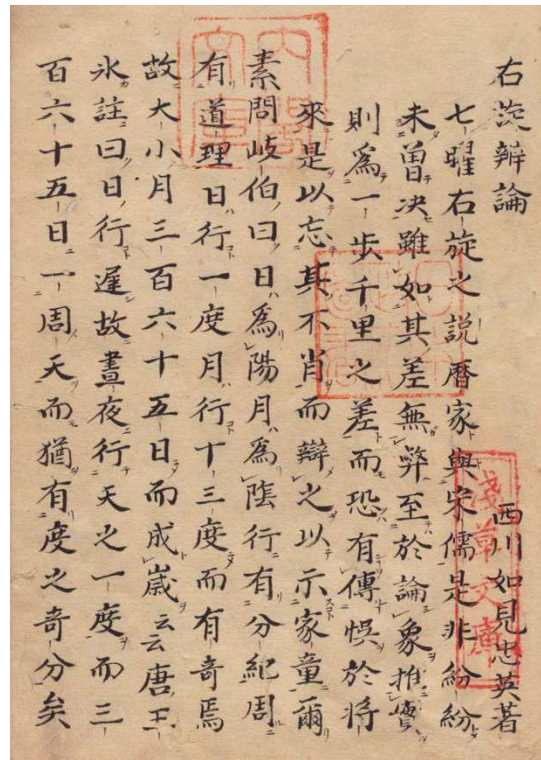 右旋辨論
西川如見忠英著
七曜右旋之説暦家與宋儒是非紛紛
未曽决雖如其差無弊至於論象推實
則爲一步千里之差而恐有傳悞於將
來是以忘其不肖而辯之以示家童爾
素問岐伯曰日爲陽月爲陰行有分紀周
有道理日行一度月行十三度而有奇焉
故大小月三百六十五日而成歳云云唐王
氷註曰日行遲故晝夜行天之一度而三
百六十五日一周天而猶有度之奇分矣
淺草文庫